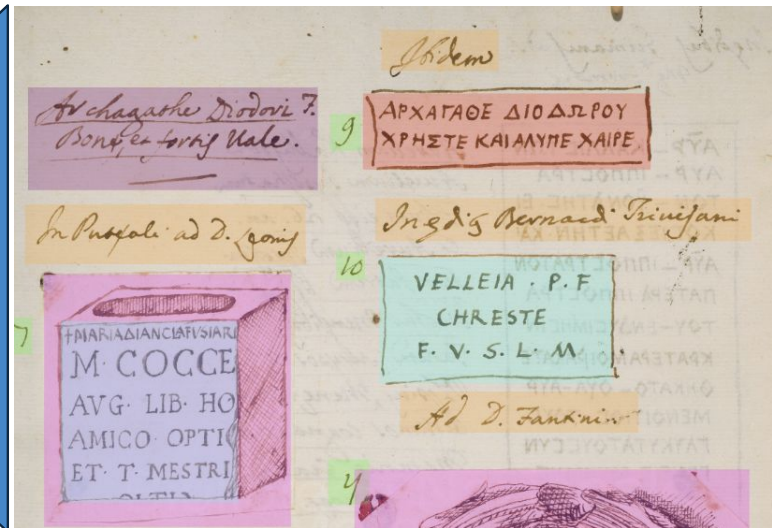 Ibidem
Archagathe Diodori F.
Bone, et fortis Vale.
9
ΑΡΧΑΓΑΘΕ ΔΙΟΔΩΡΟΥ
ΧΡΗΣΤΕ ΚΑΙ ΑΛΥΠΕ ΧΑΙΡΕ
In Puteali ad D. Leonis
In ędię Bernardi Trivisani
10
VELLEIA · P · F
CHRESTE
F · V · S · L · M ·
7
M · COCCE
AVG · LIB · HO
AMICO · OPTI
ET · T · MESTRI
Ad D.